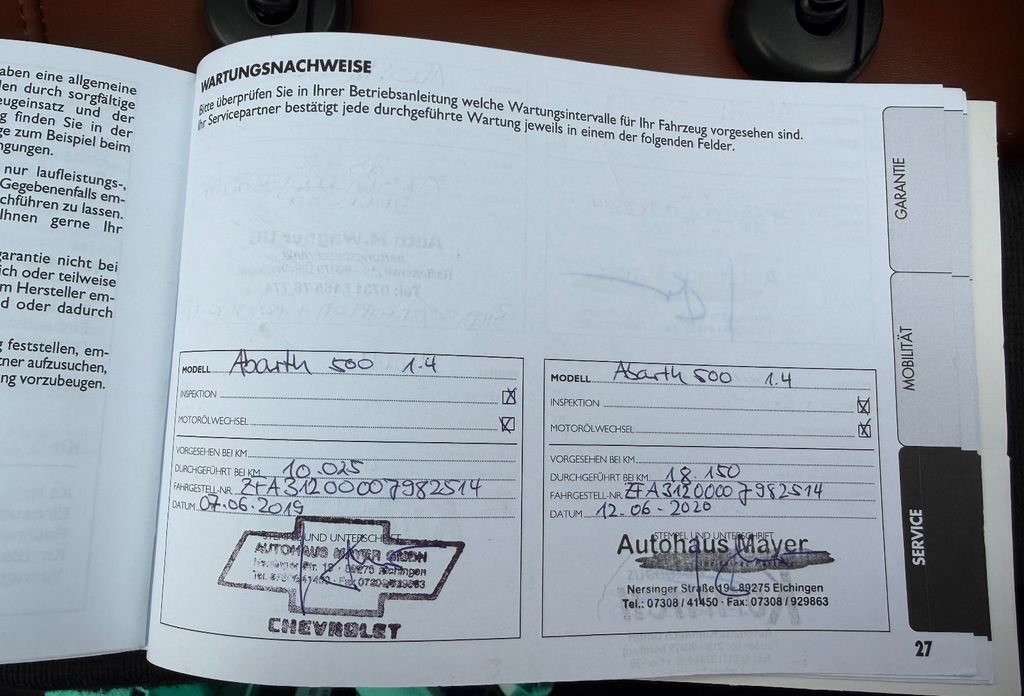 aben eine allgemeine
len durch sorgfältige
eugeinsatz und der
g finden Sie in der
ge zum Beispiel beim
ngungen.
nur laufleistungs-,
Gegebenenfalls em-
chführen zu lassen.
Ihnen gerne Ihr
garantie nicht bei
ich oder teilweise
m Hersteller em-
d oder dadurch
g feststellen, em-
tner aufzusuchen,
ng vorzubeugen.
WARTUNGSNACHWEISE
Bitte überprüfen Sie in Ihrer Betriebsanleitung welche Wartungsintervalle für Ihr Fahrzeug vorgesehen sind.
Ihr Servicepartner bestätigt jede durchgeführte Wartung jeweils in einem der folgenden Felder.
MODELL Abarth 500 1.4
INSPEKTION X
MOTORÖLWECHSEL X
VORGESEHEN BEI KM
DURCHGEFÜHRT BEI KM 10.025
FAHRGESTELL-NR. ZFA31200007982514
DATUM 07.06.2019
STEMPEL UND UNTERSCHRIFT
AUTOHAUS MAYER GMBH
89275 Elchingen
CHEVROLET
MODELL Abarth 500 1.4
INSPEKTION X
MOTORÖLWECHSEL X
VORGESEHEN BEI KM
DURCHGEFÜHRT BEI KM 18.150
FAHRGESTELL-NR. ZFA31200007982514
DATUM 12.06.2020
STEMPEL UND UNTERSCHRIFT
Autohaus Mayer
Nersinger Straße 19 · 89275 Elchingen
Tel.: 07308 / 41450 · Fax: 07308 / 929863
GARANTIE
MOBILITÄT
SERVICE
27